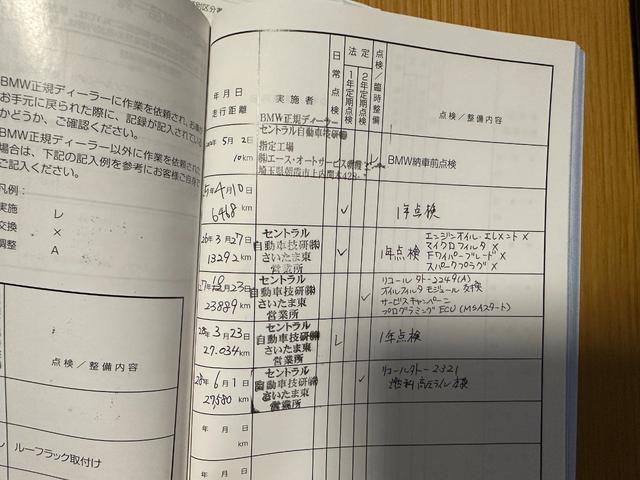 BMW正規ディーラーに作業を依頼され、お車が
お手元に戻られた際に、記録が記入されている
かどうか、ご確認ください。
BMW正規ディーラー以外に作業を依頼された
場合は、下記の記入例を参考にお客様ご自身で
ご記入ください。
凡例：
実施 レ
交換 ×
調整 A
点検／整備内容
ルーフラック取付け
年月日
走行距離
実施者
日常点検
法定
1年定期点検
2年定期点検
点検／臨時整備
点検／整備内容
年5月2日
10km
BMW正規ディーラー
セントラル自動車技研㈱
指定工場
㈱エース・オートサービス朝霞
埼玉県朝霞市上内間木428-
BMW納車前点検
25年4月10日
6468km
1年点検
26年3月27日
13292km
セントラル
自動車技研㈱
さいたま東
営業所
1年点検
エンジンオイル・エレメント ×
マイクロフィルタ ×
Fワイパーブレード ×
スパークプラグ ×
23889km
セントラル
自動車技研㈱
さいたま東
営業所
リコール
オイルフィルタモジュール交換
サービスキャンペーン
プログラミング ECU (MSAスタート)
28年3月23日
27.034km
セントラル
自動車技研㈱
さいたま東
営業所
1年点検
28年6月1日
27,580km
セントラル
自動車技研㈱
さいたま東
営業所
リコール
燃料高圧ライン
年月日
km
年月日